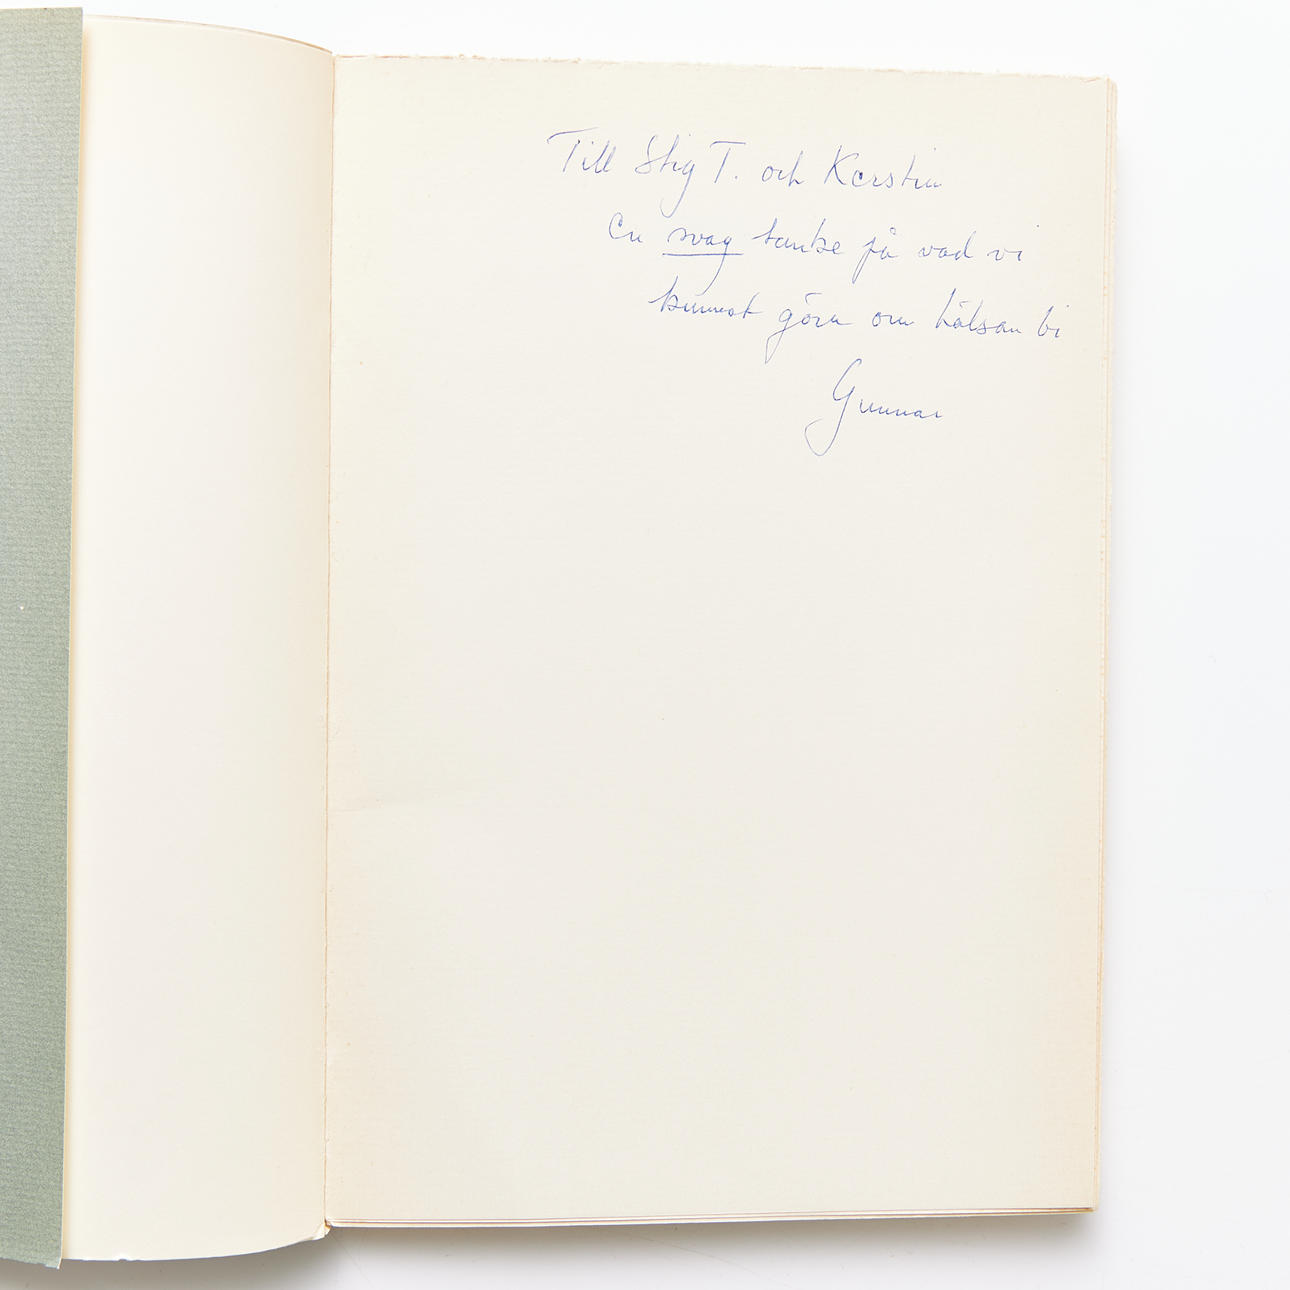 Till Stig T. och Kerstin
En svag tanke på vad vi
kunnat göra om hälsan bi
Gunnar